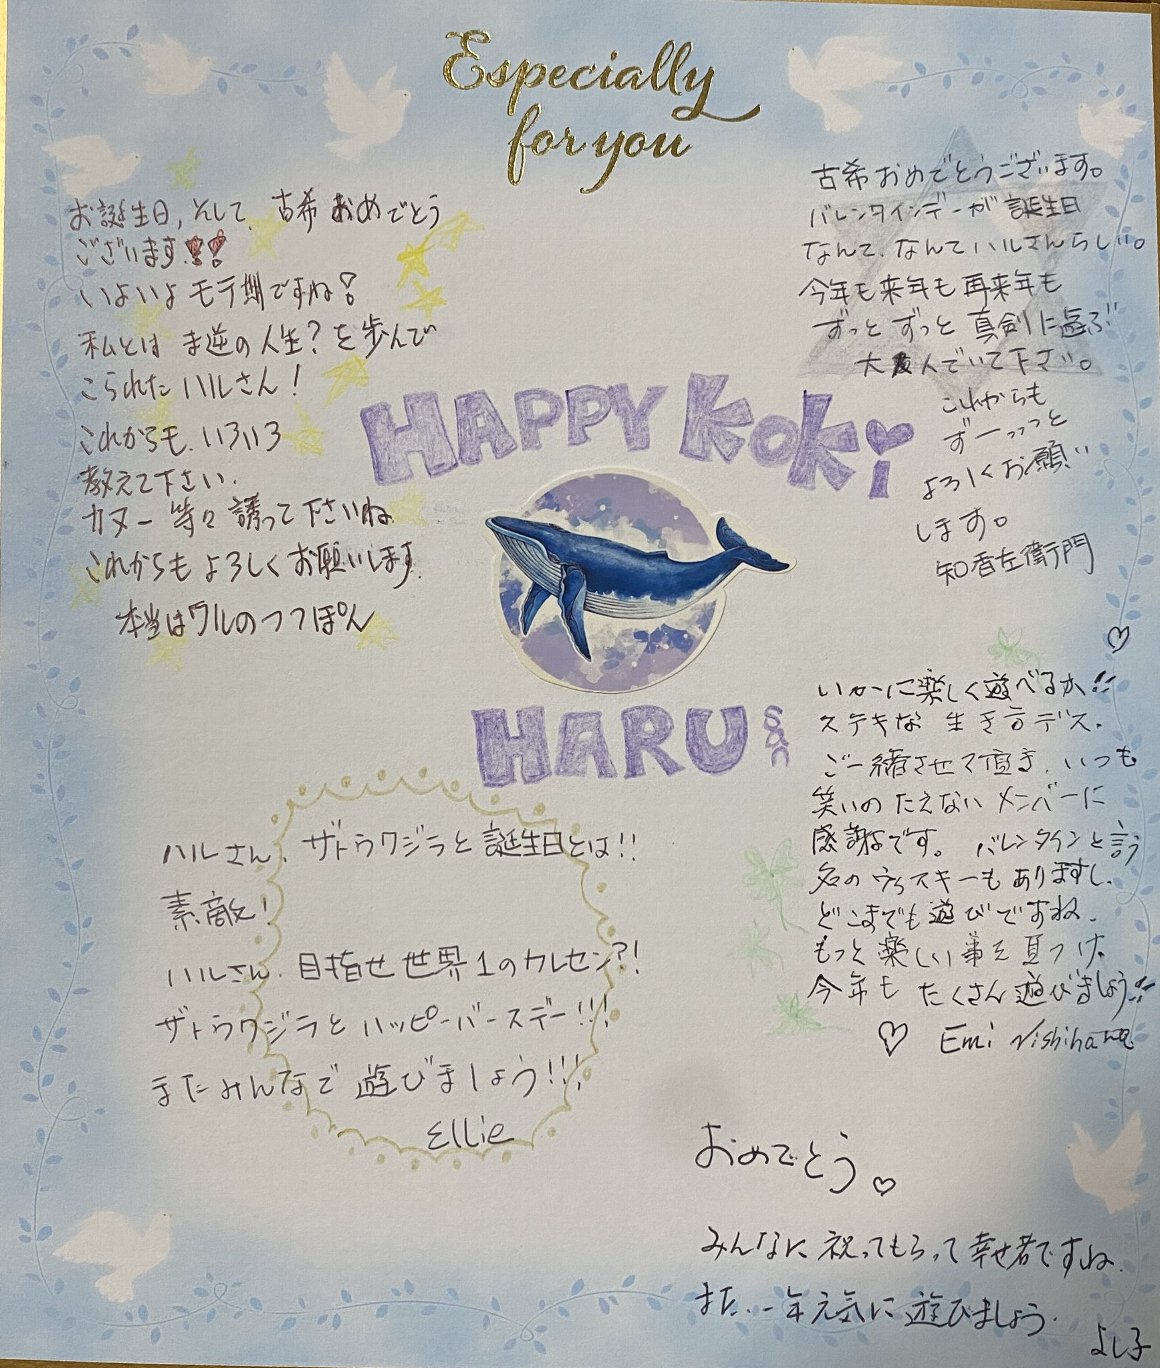 Especially
for you
お誕生日,そして、古希おめでとう
ございます!!
いよいよモテ期ですね!
私とは ま逆の人生?を歩んで
こられたハルさん!
これからも、いろいろ
教えて下さい.
カヌー等々誘って下さいね
これからもよろしくお願いします.
本当はワルのつつぽん
古希おめでとうございます。
バレンタインデーが誕生日
なんて、なんてハルさんらしい。
今年も来年も再来年も
ずっとずっと真剣に遊ぶ
大人でいて下さい。
これからも
ずーっっっと
よろしくお願い
します。
知香左衛門
HAPPY KOKi
HARU SAN
いかに楽しく遊べるか!!
ステキな 生き方デス.
ご一緒させて頂き、いつも
笑いのたえないメンバーに
感謝です。バレンタインと言う
名のウィスキーもありますし、
どこまでも遊びですね.
もっと楽しい事を見つけ、
今年もたくさん遊びましょう!!
♡ Emi Nishihara
ハルさん、ザトウクジラと誕生日とは!!
素敵!
ハルさん、目指せ世界1のカレセン?!
ザトウクジラとハッピーバースデー!!!
またみんなで遊びましょう!!!
Ellie
おめでとう♡
みんなに祝ってもらって幸せ者ですね.
また、一年元気に遊びましょう.
よし子